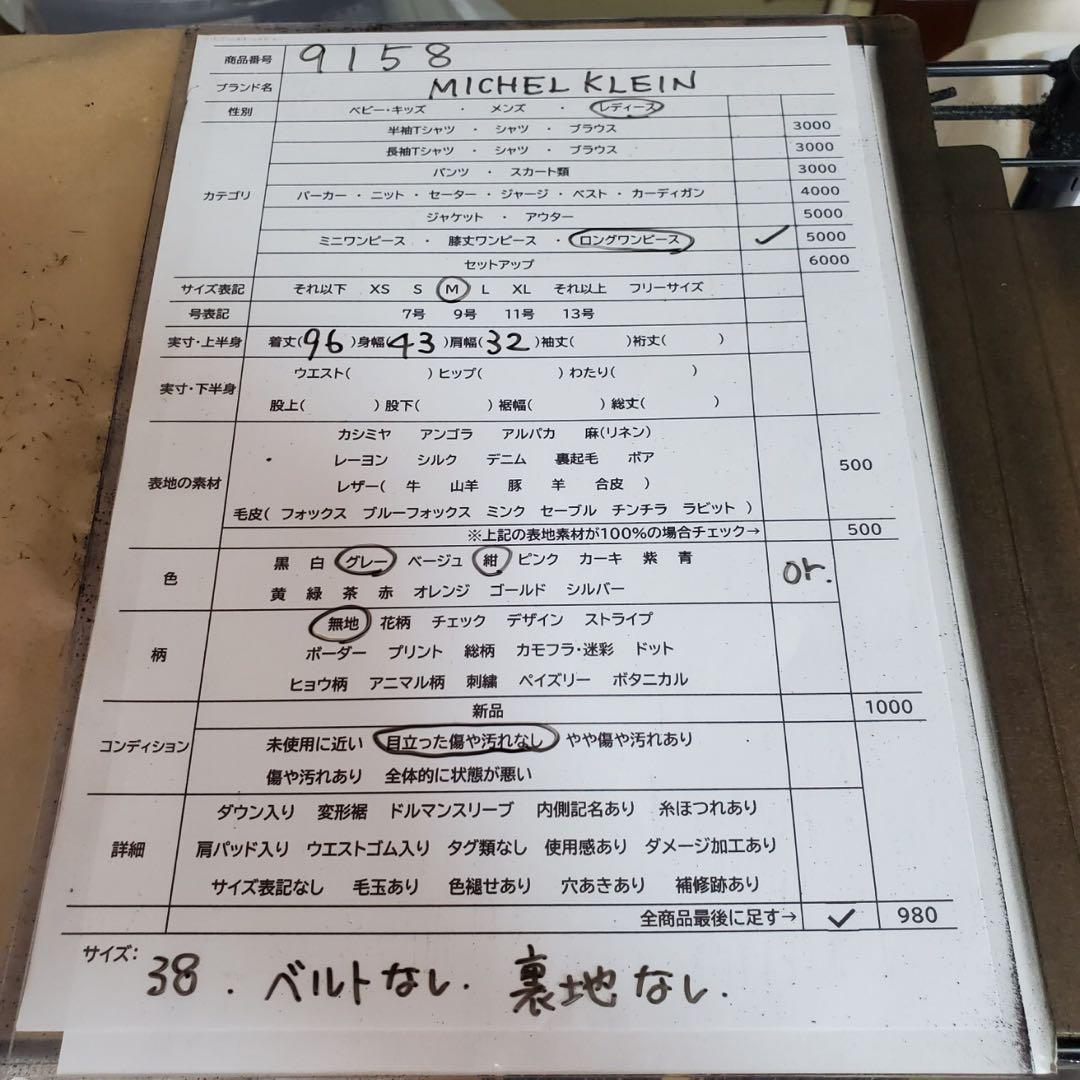 商品番号 9158
ブランド名 MICHEL KLEIN
性別 ベビー・キッズ ・ メンズ ・ レディース
半袖Tシャツ ・ シャツ ・ ブラウス 3000
長袖Tシャツ ・ シャツ ・ ブラウス 3000
パンツ ・ スカート類 3000
カテゴリ パーカー ・ ニット ・ セーター ・ ジャージ ・ ベスト ・ カーディガン 4000
ジャケット ・ アウター 5000
ミニワンピース ・ 膝丈ワンピース ・ ロングワンピース ✓ 5000
セットアップ 6000
サイズ表記 それ以下 XS S M L XL それ以上 フリーサイズ
号表記 7号 9号 11号 13号
実寸・上半身 着丈(96)身幅(43)肩幅(32)袖丈( )裄丈( )
実寸・下半身 ウエスト( )ヒップ( )わたり( )
股上( )股下( )裾幅( )総丈( )
カシミヤ アンゴラ アルパカ 麻(リネン)
レーヨン シルク デニム 裏起毛 ボア 500
表地の素材 レザー( 牛 山羊 豚 羊 合皮 )
毛皮( フォックス ブルーフォックス ミンク セーブル チンチラ ラビット )
※上記の表地素材が100%の場合チェック→ 500
色 黒 白 グレー ベージュ 紺 ピンク カーキ 紫 青 or.
黄 緑 茶 赤 オレンジ ゴールド シルバー
無地 花柄 チェック デザイン ストライプ
柄 ボーダー プリント 総柄 カモフラ・迷彩 ドット
ヒョウ柄 アニマル柄 刺繍 ペイズリー ボタニカル
新品 1000
コンディション 未使用に近い 目立った傷や汚れなし やや傷や汚れあり
傷や汚れあり 全体的に状態が悪い
ダウン入り 変形裾 ドルマンスリーブ 内側記名あり 糸ほつれあり
詳細 肩パッド入り ウエストゴム入り タグ類なし 使用感あり ダメージ加工あり
サイズ表記なし 毛玉あり 色褪せあり 穴あきあり 補修跡あり
全商品最後に足す→ ✓ 980
サイズ: 38 . ベルトなし. 裏地なし.